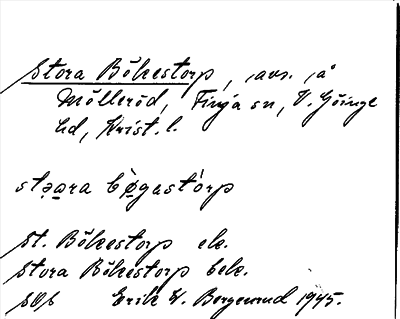 Stora Bökestorp, , avs. , å
Mölleröd, Finja sn, V. Göinge
hd, Krist. l.
stǝara bø̀gastórp
St. Bökestorp ek.
Stora Bökestorp bek.
Erik W. Bergenrud 1945.